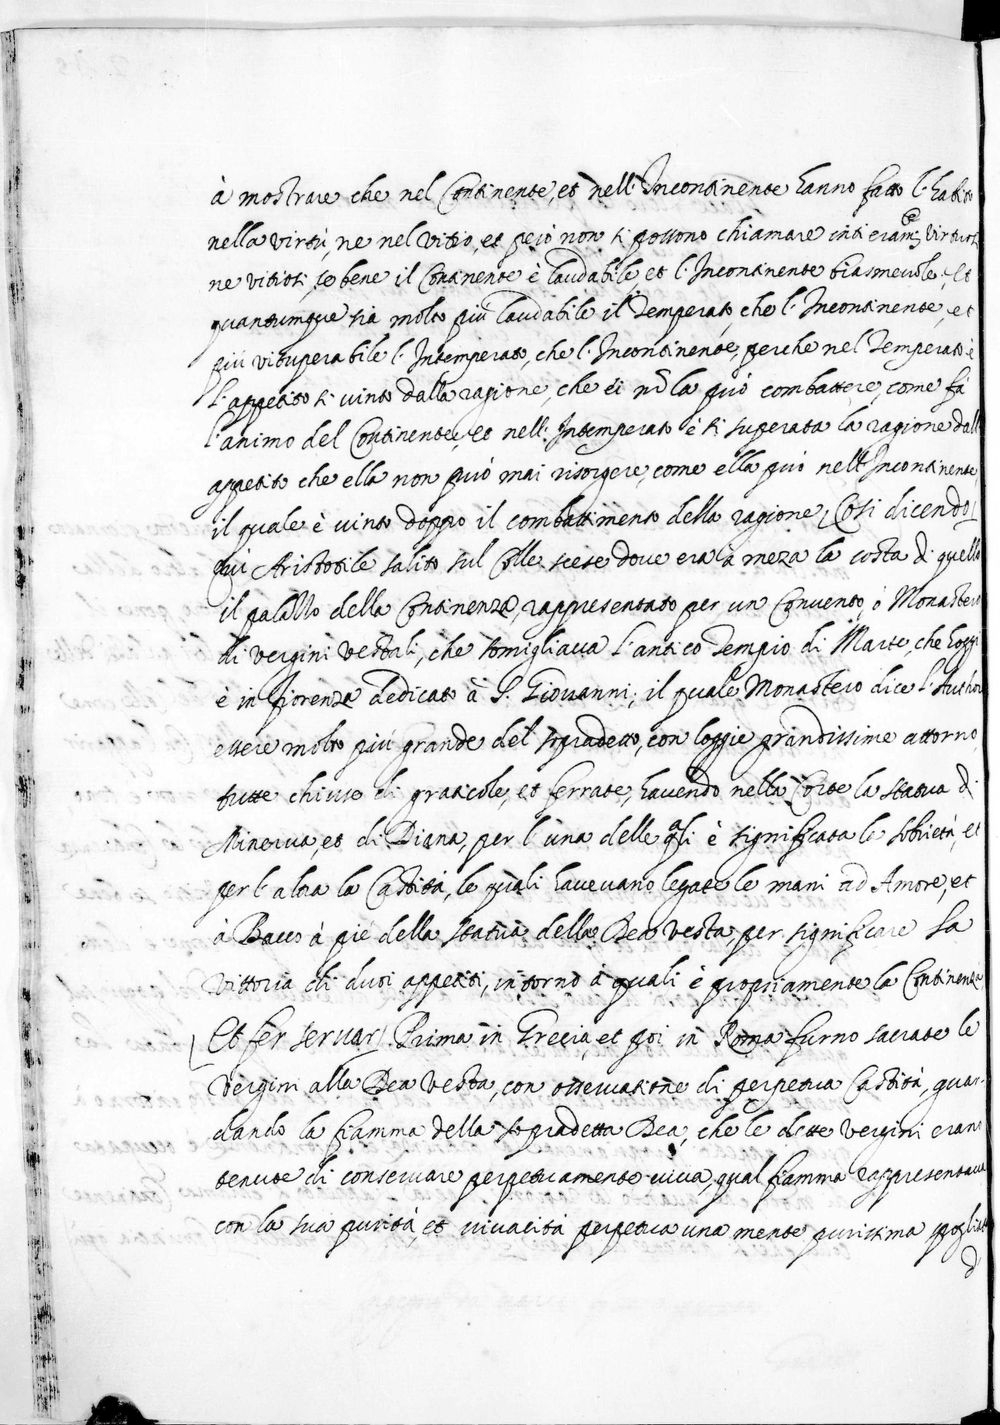 à mostrare che nel Continente, et nell'Incontinente hanno fatto l'habito
nella virtù, ne nel vitio, et però non si possono chiamare intieram.te virtuosi
ne vitiosi, se bene il Continente è laudabile, et l'Incontinente biasmevole, et
quantumque sia molto più laudabile il Temperato, che l'Incontinente, et
più vituperabile l'Intemperato, che l'Incontinente, perche nel Temperato è
l'appetito sì vinto dalla ragione, che ei nō la può combattere, come fà
l'animo del Continente, et nell'Intemperato è sì superata la ragione dall'
appetito che ella non può mai risorgere, come ella può nell'Incontinente,
il quale è vinto doppo il combattimento della ragione. Così dicendo]
qui Aristotile salito sul Colle scese dove era à meza la costa di quello
il palazzo della Continenza, rappresentato per un Convento, ò Monastero
di vergini vestali, che somigliava l'antico Tempio di Marte, che hoggi
è in Fiorenza dedicato à S. Giovanni; il quale Monastero dice l'Author
essere molto più grande del sopradetto, con loggie grandissime attorno,
tutte chiuse di graticole, et ferrate, havendo nella Corte la statua di
Minerva, et di Diana, per l'una delle q.ali è significata la sobrietà, et
per l'altra la Castità, le quali havevano legate le mani ad Amore, et
à Bacco à piè della statua della Dea Vesta, per significare la
vittoria di duoi appetiti, intorno à quali è propriamente la Continenza
[Et fer servar] Prima in Grecia, et poi in Roma furno sacrate le
Vergini alla Dea Vesta, con osservatione di perpetua Castità, guar-
dando la fiamma della sopradetta Dea, che le dette vergini erano
tenute di conservare perpetuamente viva, qual fiamma rappresentava
con la sua purità, et vivacità perpetua una mente purissima spogliata
d